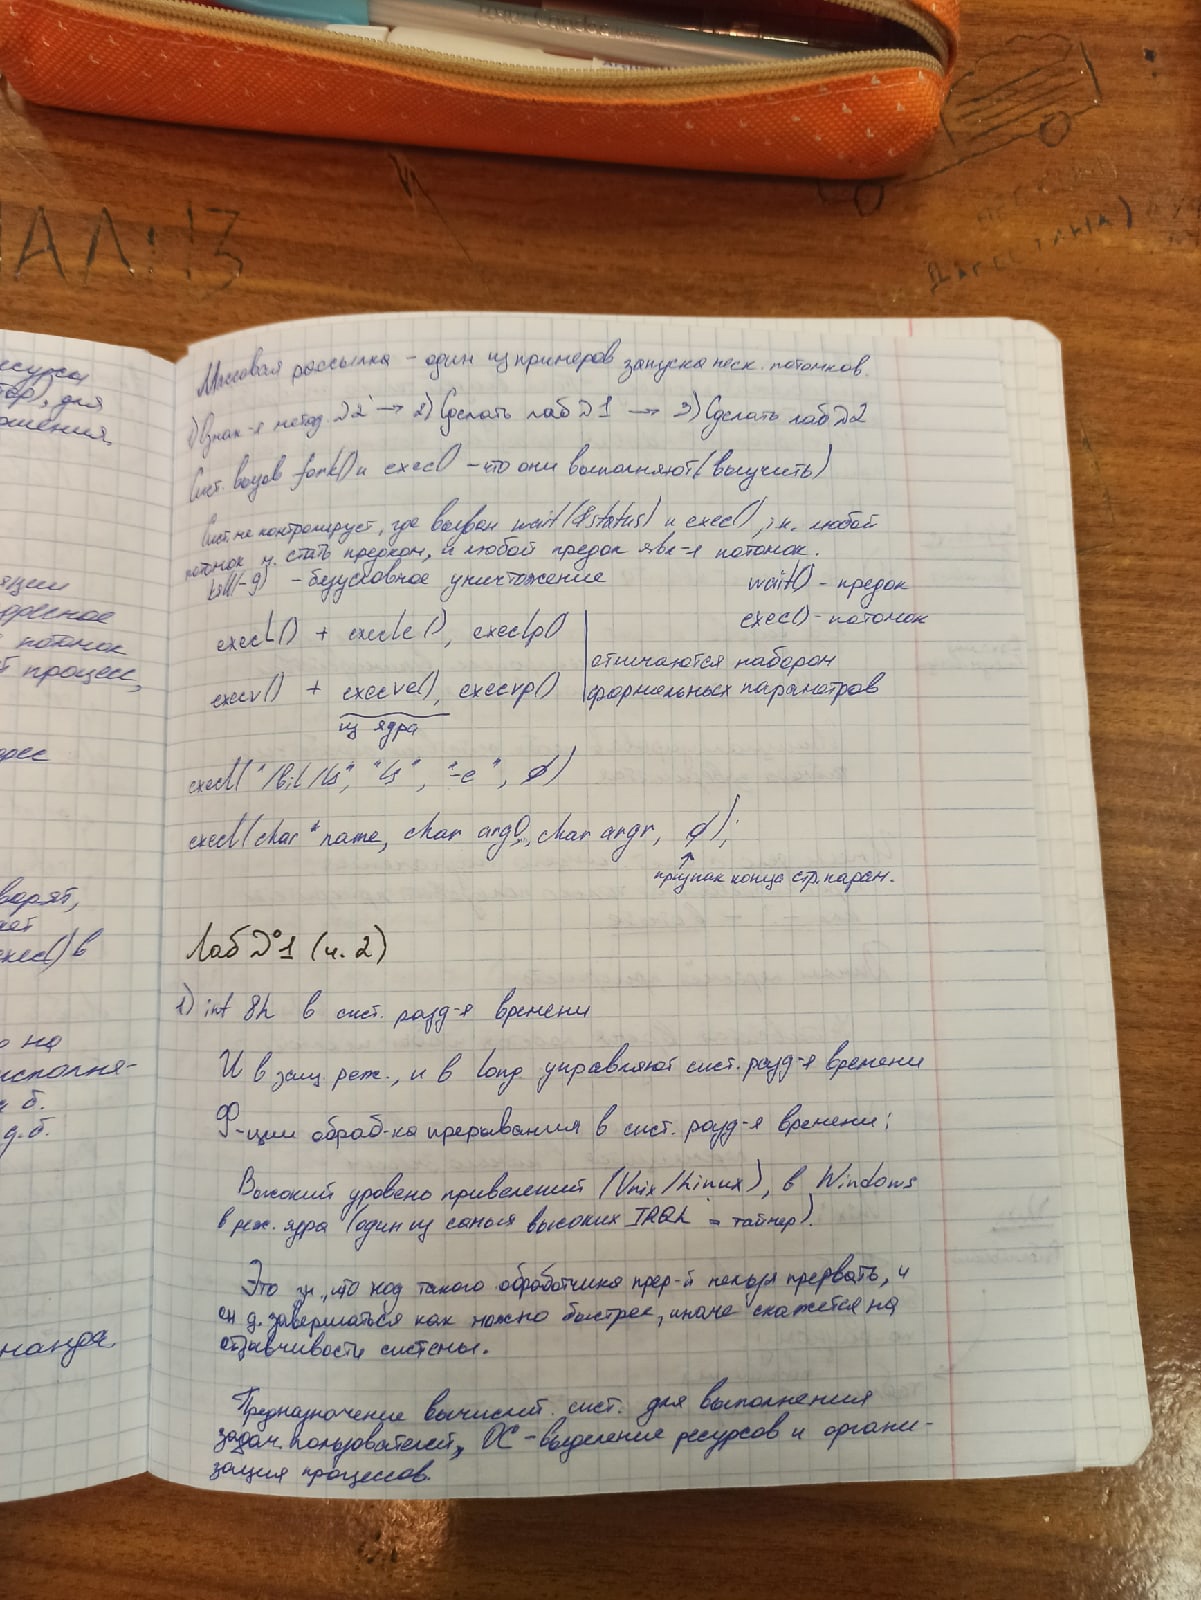 Массовая рассылка – один из примеров запуска неск. потомков.
1) Ознак-я метод. №2 → 2) Сделать лаб №1 → 3) Сделать лаб №2
Сист. вызов fork() и exec() – что они выполняют (выучить)
Сист. не контролирует, где вызван wait(&status) и exec(), т.к. любой
потомок м. стать предком, и любой предок явл-я потомок.
kill(-9) – безусловное уничтожение
wait() – предок
exec() – потомок
execl() + execle(), execlp()
execv() + execve(), execvp()
из ядра
отличаются набором
формальных параметров
execl("/bil/ls", "ls", "-e", ∅)
execl(char * name, char arg0,, char argn, ∅);
признак конца стр. парам.
Лаб №1 (ч. 2)
1) int 8h в сист. разд-я времени
И в защ. реж., и в long управляют сист. разд-я времени
Ф-ции обраб-ка прерывания в сист. разд-я времени:
Высокий уровень привелений (Unix/Linux), в Windows
в реж. ядра (один из самых высоких IRQL = таймер).
Это зн., что код такого обработчика прер-й нельзя прервать, и
он д. завершаться как можно быстрее, иначе скажется на
отзывчивости системы.
Предназначение вычислит. сист. для выполнения
задач. пользователей, ОС – выделение ресурсов и органи-
зация процессов.
ресурсы
для
потомок
процесс,
ворят,
exec() в
о на
исполня-
д.б.
МАЛ:13